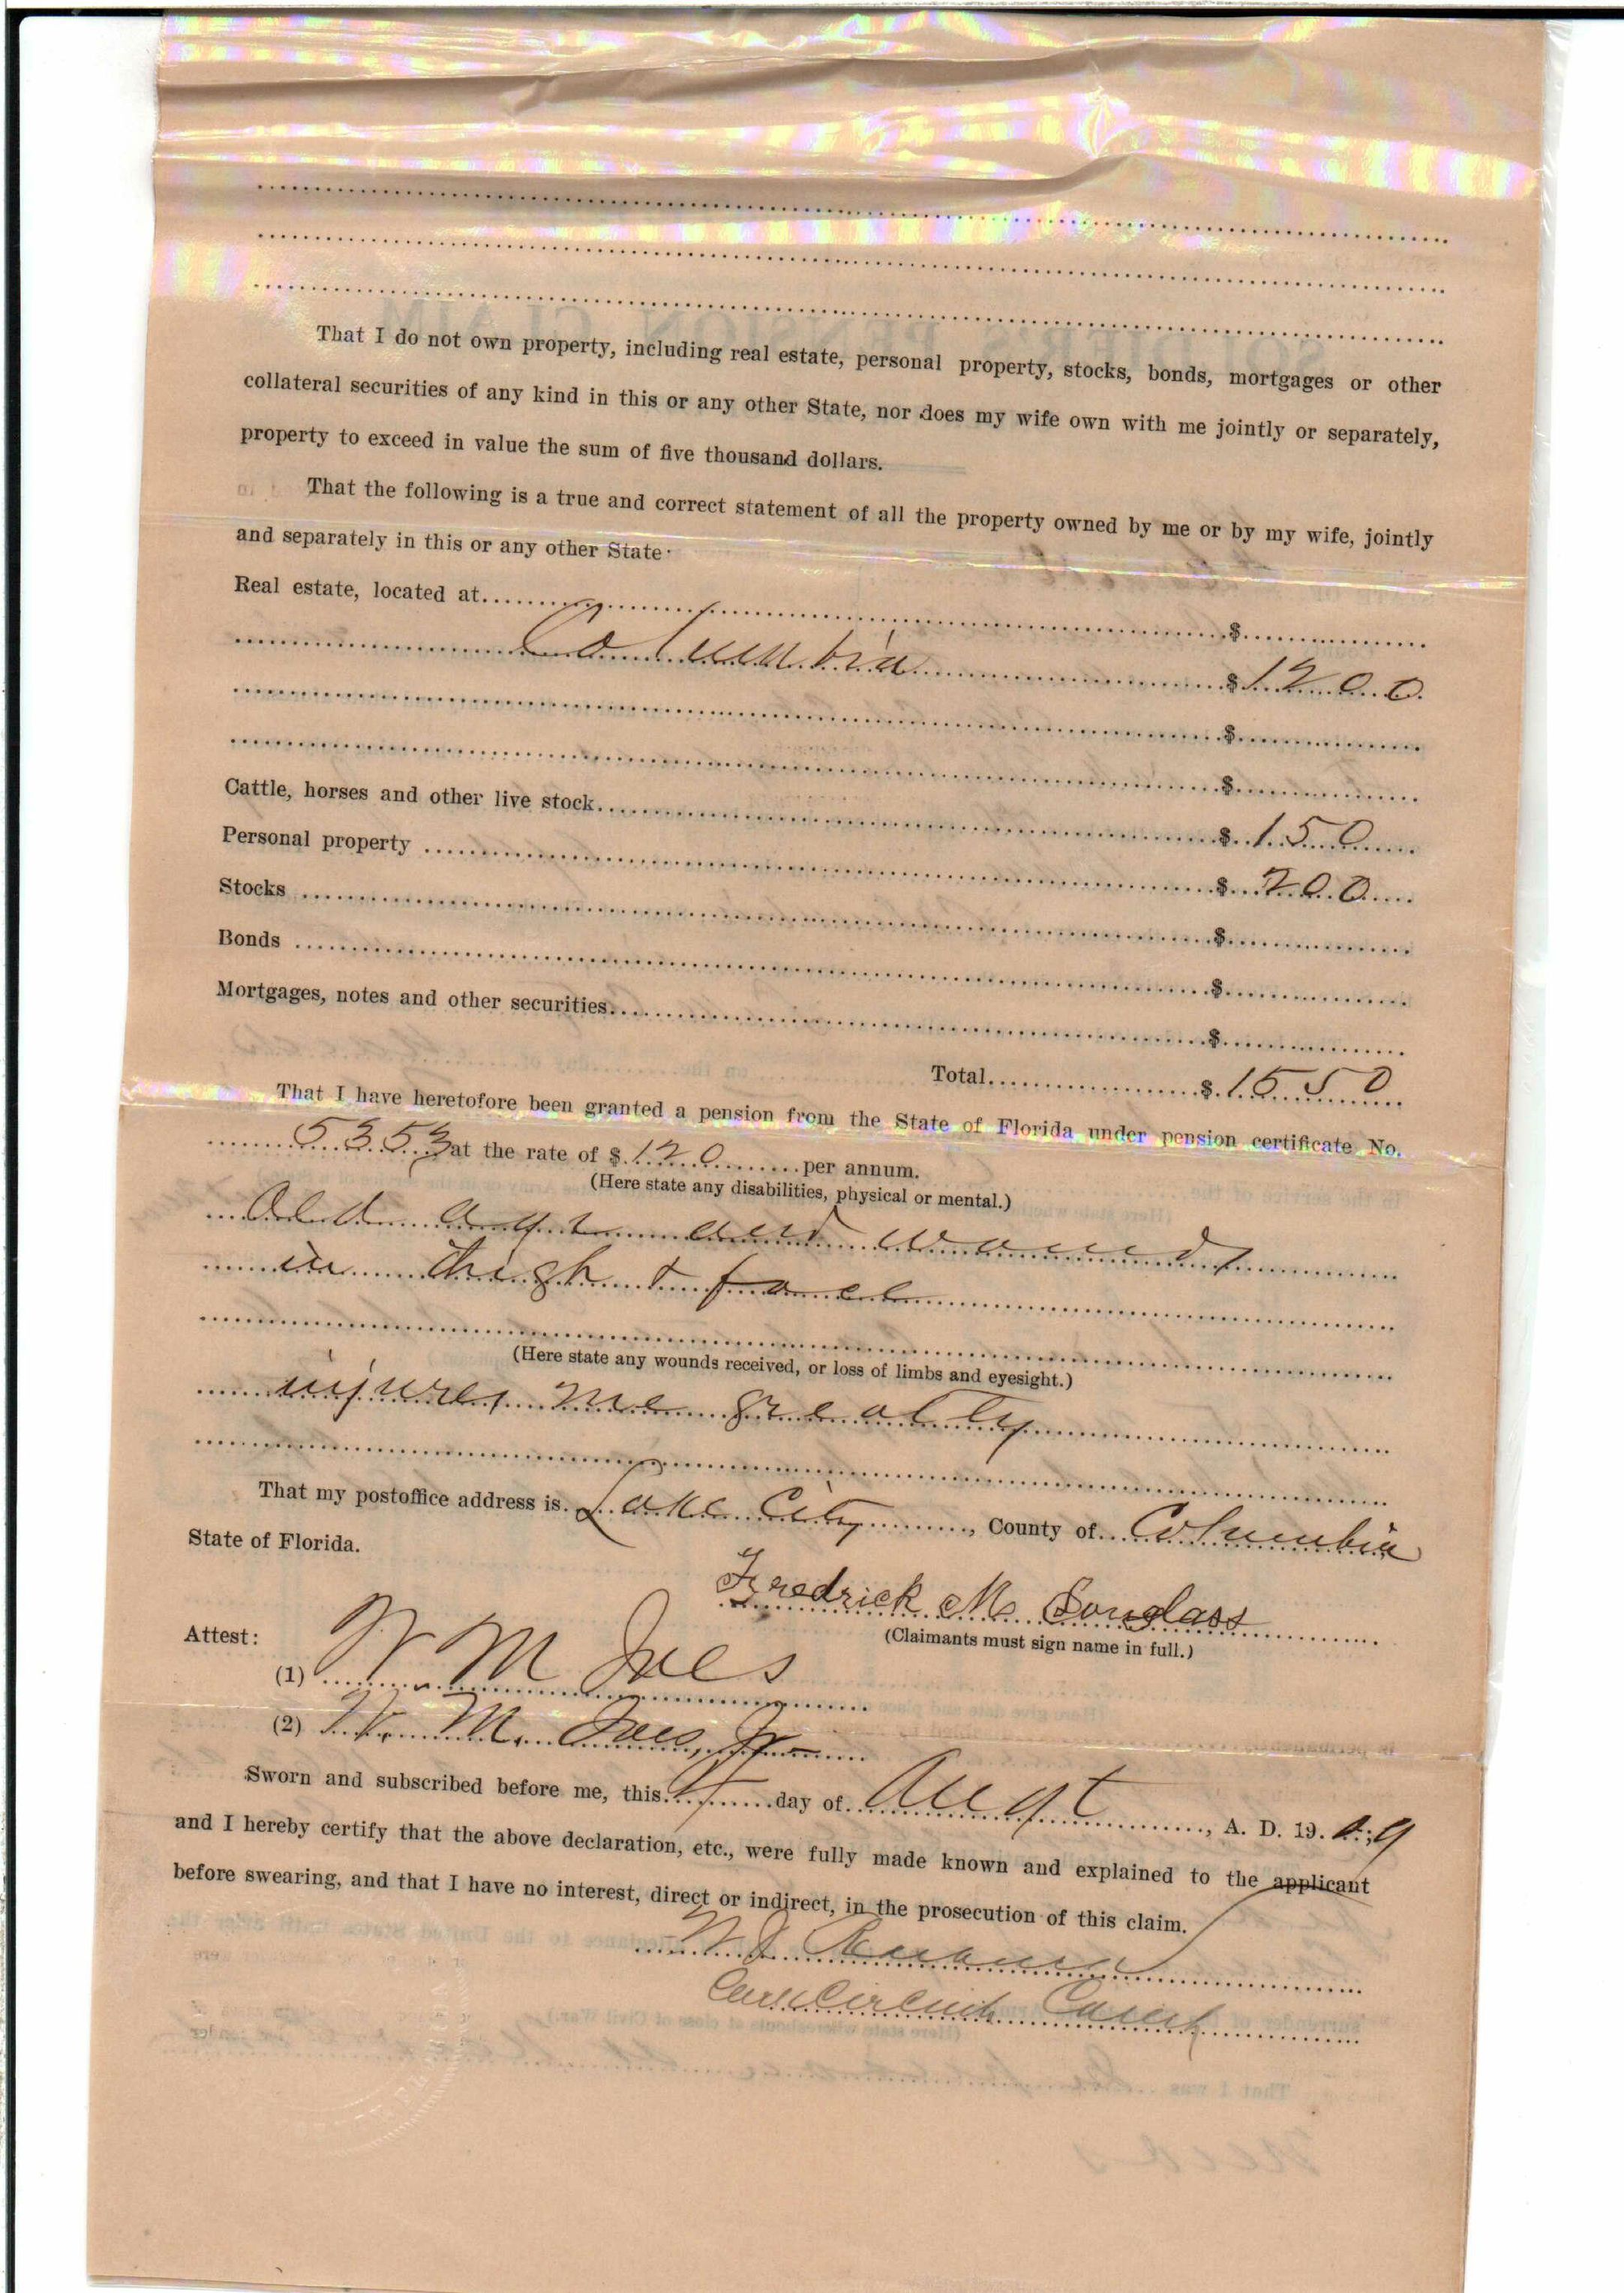 That I do not own property, including real estate, personal property, stocks, bonds, mortgages or other
collateral securities of any kind in this or any other State, nor does my wife own with me jointly or separately,
property to exceed in value the sum of five thousand dollars.
That the following is a true and correct statement of all the property owned by me or by my wife, jointly
and separately in this or any other State:
Real estate, located at $
Columbia $1200
$
$
Cattle, horses and other live stock $150
Personal property $200
Stocks $
Bonds $
Mortgages, notes and other securities $
Total $1550
That I have heretofore been granted a pension from the State of Florida under pension certificate No.
5353 at the rate of $120 per annum.
(Here state any disabilities, physical or mental.)
Old age and wounds
in thigh & face
(Here state any wounds received, or loss of limbs and eyesight.)
injures me greatly
That my postoffice address is Lake City, County of Columbia
State of Florida.
Fredrick M Douglass
(Claimants must sign name in full.)
Attest:
(1) W M Ives
(2) W. M. Ives, Jr
Sworn and subscribed before me, this day of Augt, A. D. 1909
and I hereby certify that the above declaration, etc., were fully made known and explained to the applicant
before swearing, and that I have no interest, direct or indirect, in the prosecution of this claim.
Circuit Court